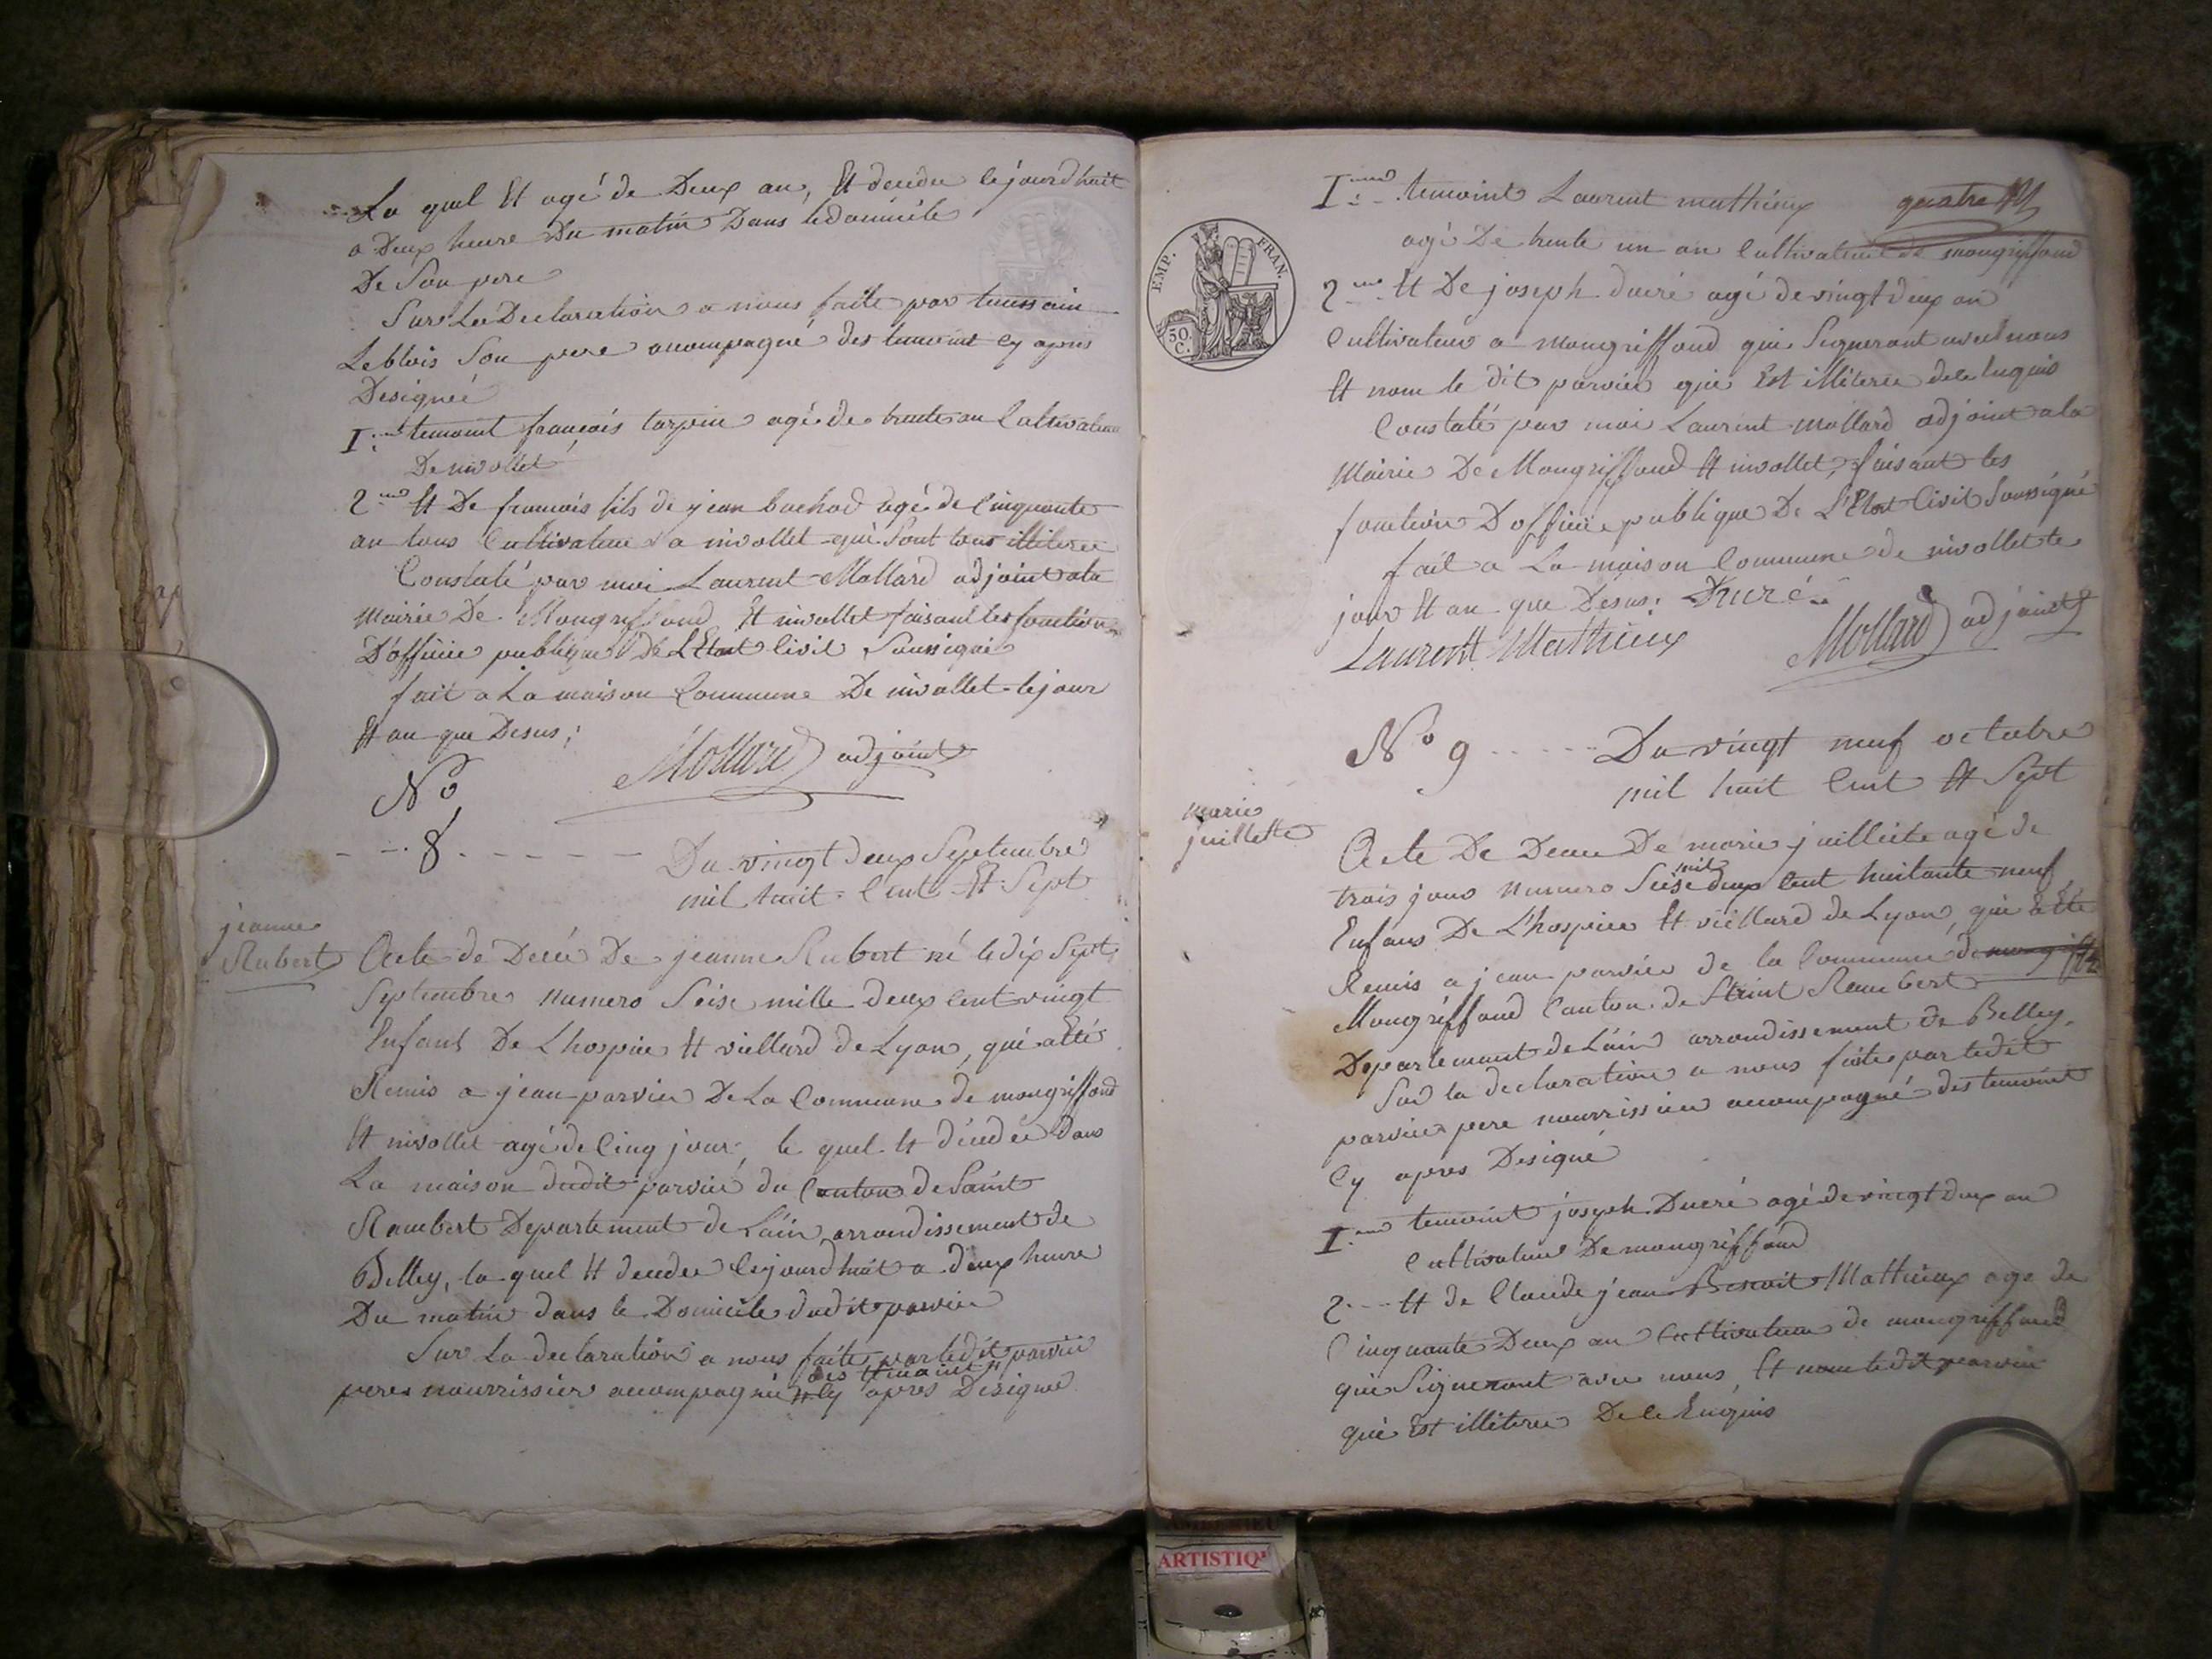 La quel Et agé de Deux an, Et decedee cejourdhuit
a Deux heure Du matin Dans le domicile
De Son pere
Sur La Declaration a nous faite par toussain
Leblois Son pere acompagné des temoint Cy apres
Designée
I: temoint françois tarpin agé de trente an Cultivateur
De nivollet
2 Et De francois fils de jean bachod agé de Cinquante
an tous Cultivateur a nivollet qui Sont tous illiteree
Constaté par moi Laurent Mollard adjoint a la
Mairie De Mongriffond Et nivollet faisant les fonction
D'officiee publique De L'Etat Civil Soussigné
fait a La maison Commune De nivollet le jour
Et an que Desus;
Mollard adjoint
No
8
Du vingt deux Septembre
mil huit Cent Et Sept
jeanne
Rubert
Acte de Decée De jeanne Rubert né le dix Sept
Septembre numero Seise mille deux Cent vingt
Enfant De L'hospice Et viellard de Lyon, qui a Eté
Remis a jean parvier De La Commune de mongriffond
Et nivollet agé de Cinq jour, le quel Et décedée dans
La maison dudit parvier du Canton de Saint
Rambert Departement de L'ain arrondissement de
Belley, la quel Et decedee cejourd'huit a deux heure
Du matin dans le Domicile dudit parvier
Sur La declaration a nous faite par ledit parvier
pere nourrissier acompagnie des temoint Cy apres Designé
EMP. FRAN.
50 C.
quatre
I: temoint Laurent mathieux
agé De trente un an Cultivateur de mongriffond
2 Et De joseph ducré agé de vingt deux an
Cultivateur a mongriffond qui Signeront avec nous
Et nom le dit parvier qui Est illiteree de le Enquis
Constaté par moi Laurent Mollard adjoint a la
Mairie De Mongriffond Et nivollet, faisant les
fonction D officiee publique De L'Etat Civil Soussigné
fait a La maison Commune de nivollet le
jour Et an que Desus: Ducré
Laurent Mathieux Mollard adjoint
No 9 Du vingt neuf octobre
mil huit Cent Et Sept
marie
juillette
Acte De Decee De marie juilliete agé de
trois jour numero Seise mil deux Cent huitante neuf
Enfans De L'hospice Et viellard de Lyon, qui a Eté
Remis a jean parvier de la Commune de
Mongriffond Canton de Saint Rambert
Departement de L'ain arrondissement de Belley
Sur la declaration a nous faite par ledit
parvier pere nourrissier acompagné des temoint
Cy apres Designé
I temoint joseph Ducré agé de vingt deux an
Cultivateur De mongriffond
2 Et de Claude jean Benoit Mathieux age de
Cinquante Deux an Cultivateur de mongriffond
qui Signeront avec nous, Et nom le dit parvier
qui Est illiteree De le Enquis
ARTISTIQ